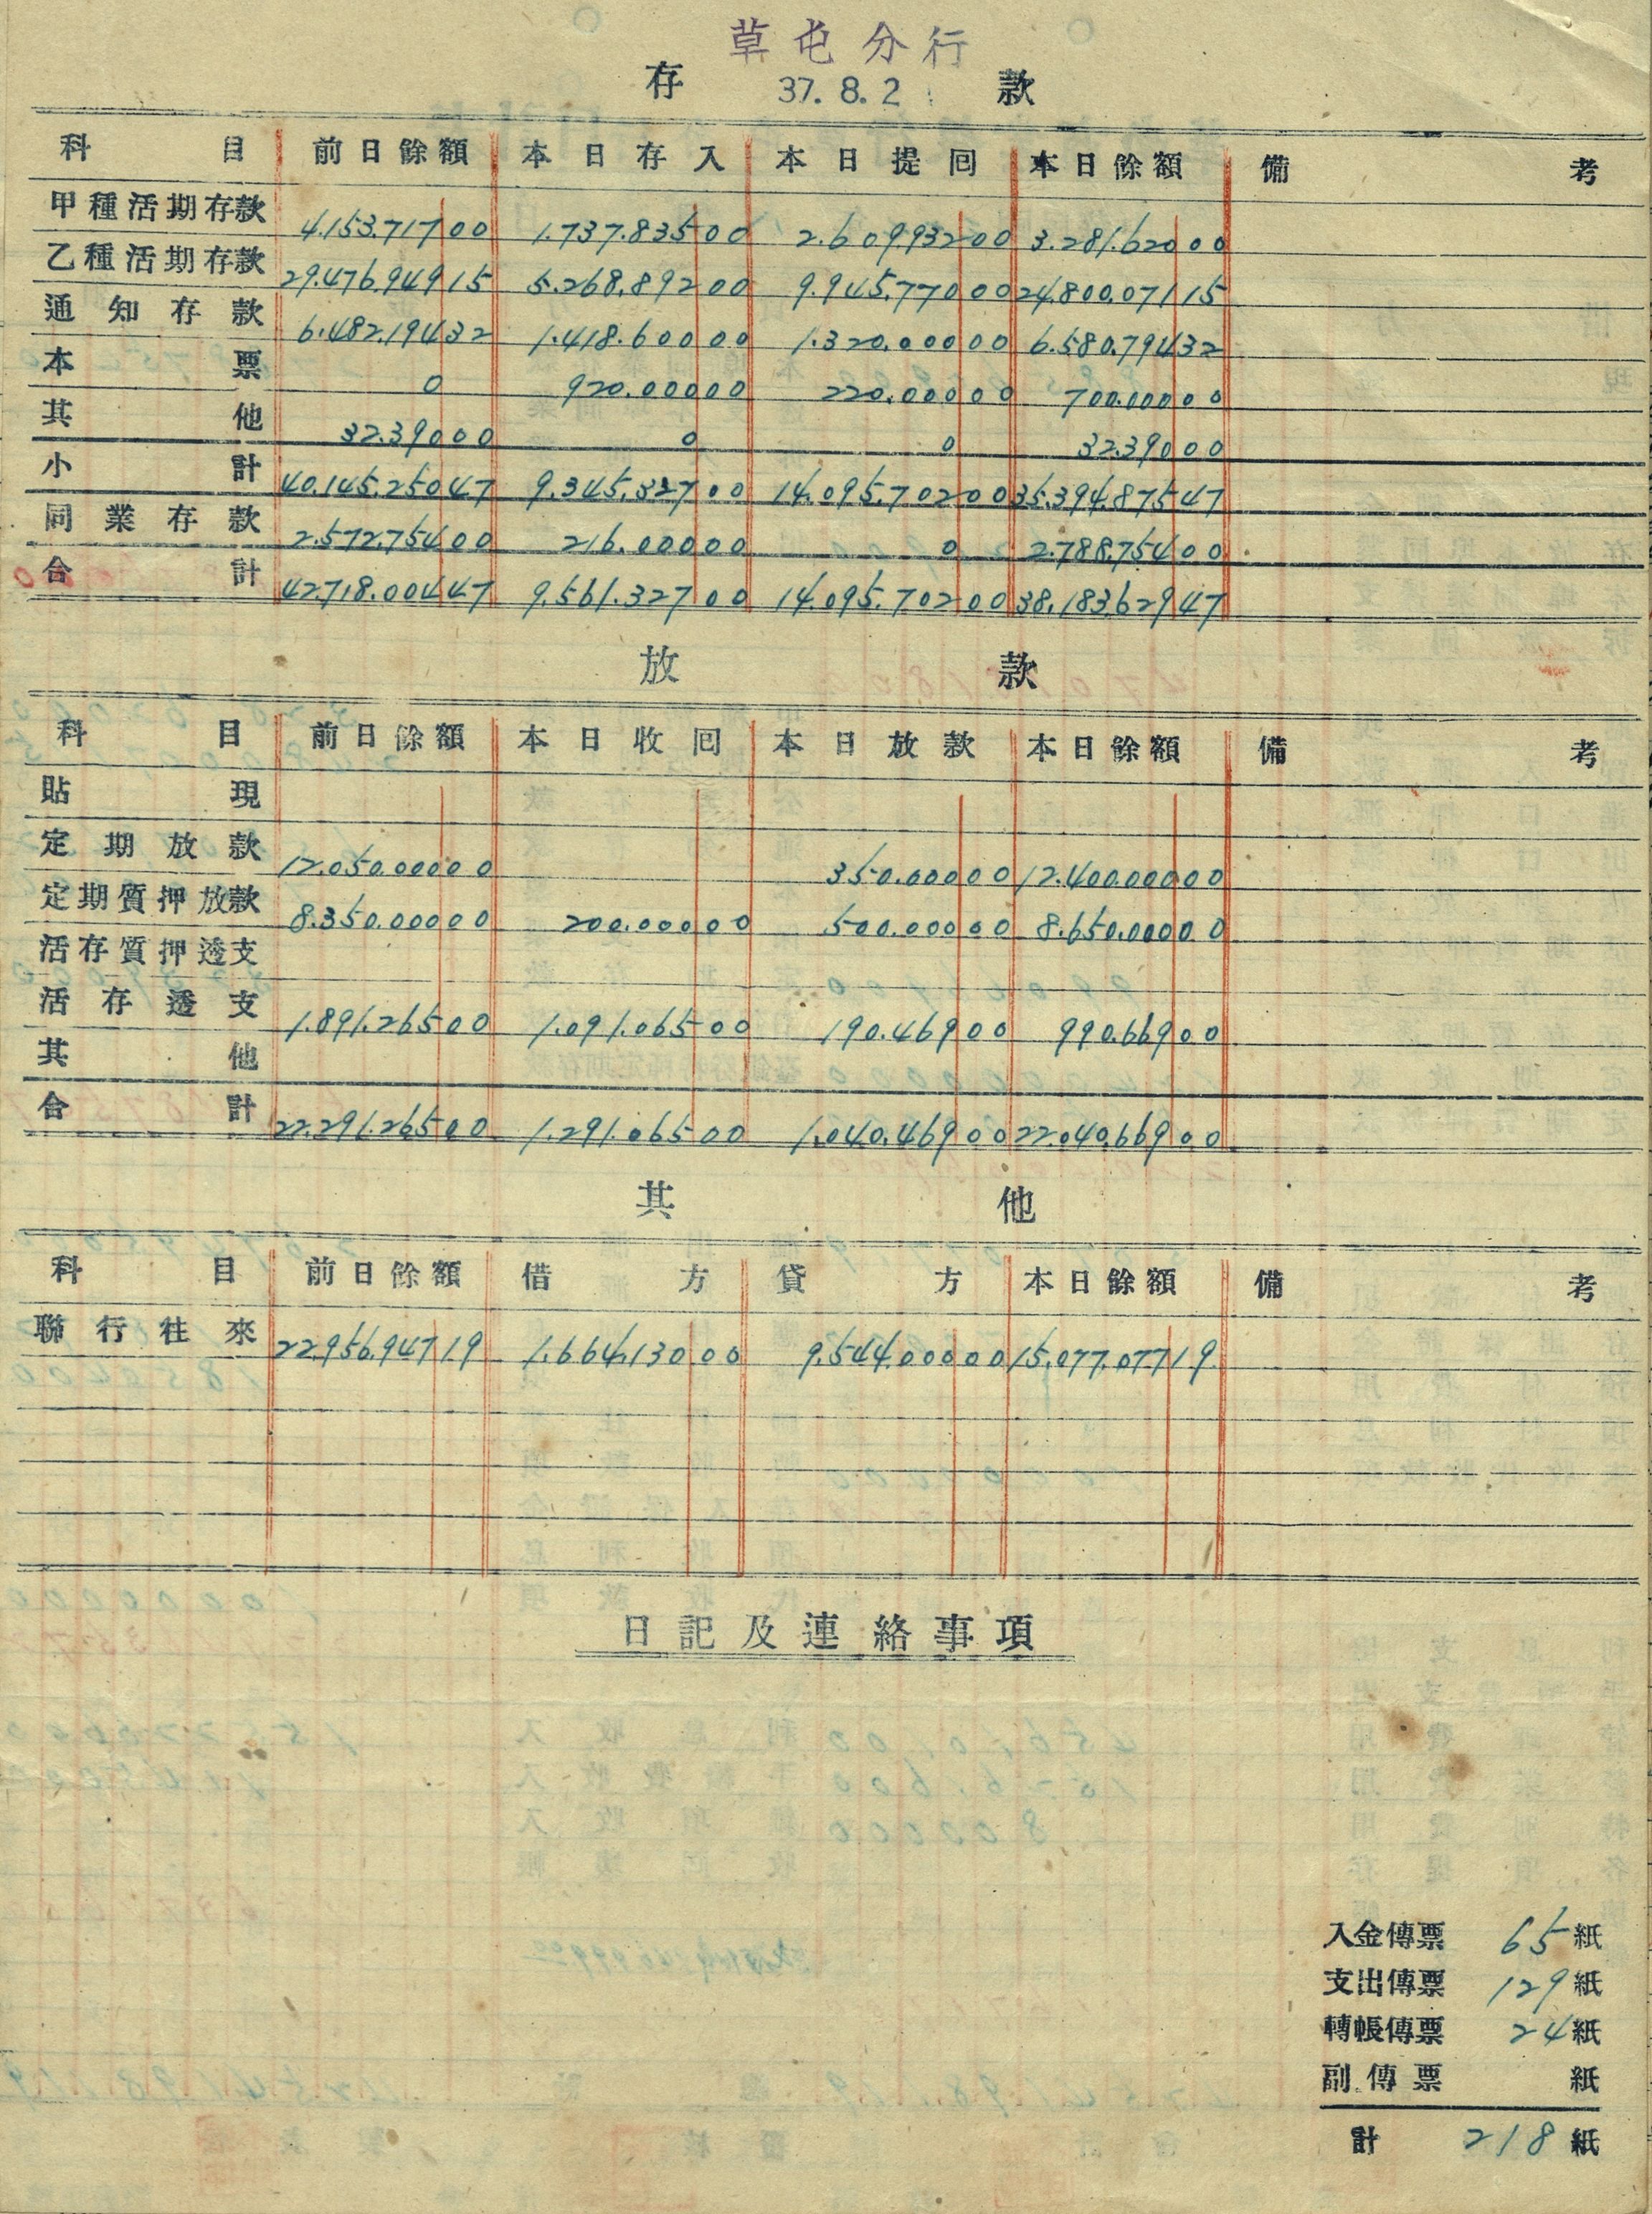 草屯分行
存 37.8.2 款
科目 前日餘額 本日存入 本日提回 本日餘額 備考
甲種活期存款 4.153.717 00 1.737.835 00 2.609.932 00 3.281.620 00
乙種活期存款 29.476.949 15 5.268.892 00 9.945.770 00 24.800.071 15
通知存款 6.482.194 32 1.418.600 00 1.320.000 00 6.580.794 32
本票 0 920.000 00 220.000 00 700.000 00
其他 32.390 00 0 0 32.390 00
小計 40.145.250 47 9.345.327 00 14.095.702 00 35.394.875 47
同業存款 2.572.754 00 216.000 00 0 2.788.754 00
合計 42.718.004 47 9.561.327 00 14.095.702 00 38.183.629 47
放款
科目 前日餘額 本日收回 本日放款 本日餘額 備考
貼現
定期放款 12.050.000 00 350.000 00 12.400.000 00
定期質押放款 8.350.000 00 200.000 00 500.000 00 8.650.000 00
活存質押透支
活存透支 1.891.265 00 1.091.065 00 190.469 00 990.669 00
其他
合計 22.291.265 00 1.291.065 00 1.040.469 00 22.040.669 00
其他
科目 前日餘額 借方 貸方 本日餘額 備考
聯行往來 22.956.947 19 1.664.130 00 9.544.000 00 15.077.077 19
日記及連絡事項
入金傳票 65 紙
支出傳票 129 紙
轉帳傳票 24 紙
副傳票 紙
計 218 紙